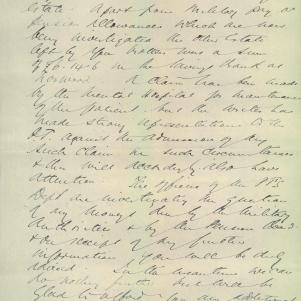 Estate. Apart from Military Pay or
Pension Allowances which are now
being investigated the Estate
left by your brother was a sum
of in the Savings Bank at
. A claim has been made
by the Mental Hospital for maintenance
of the patient but the writer has
made strong representations to the
P.T. against the admission of any
such claim in such circumstances
& this will doubtless also have
attention. The officers of the P.T's
Dept are investigating the question
of any moneys due by the Military
Authorities & by the Pensions Board
& on receipt of any further
information you will be duly
advised. In the meantime we can
do nothing further but will be
glad to afford you any additional